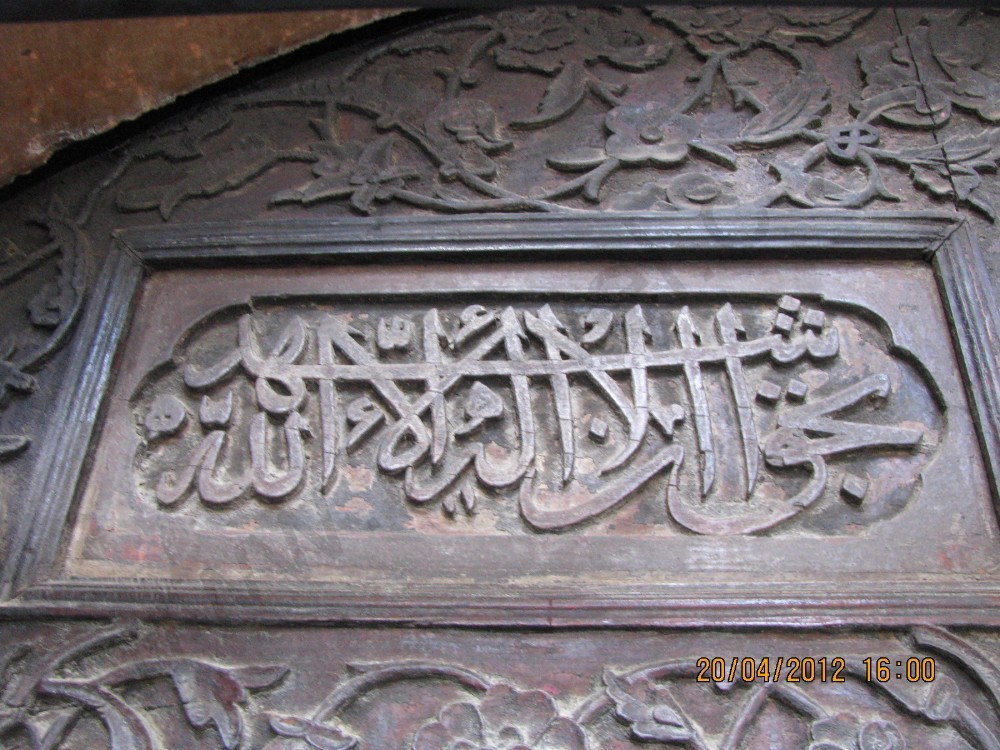 بحق اشهد ان لا اله الا الله
20/04/2012 16:00